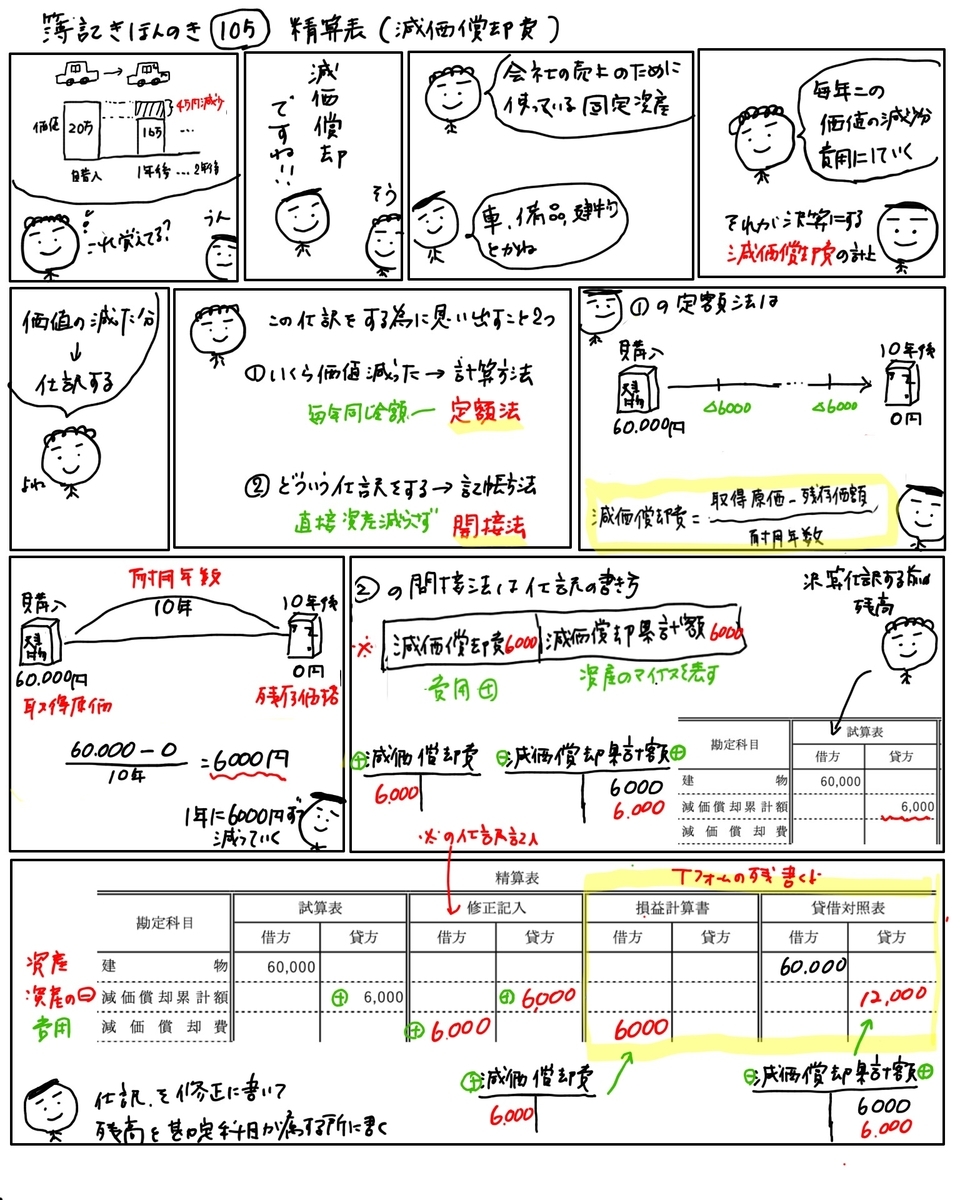 簿記きほんのき 105 精算表(減価償却費)
価値
20万
16万
4万円減少
...
購入
1年後 ... 2年後
これ覚えてる?
うん
減価償却
ですね!!
そう
会社の売上のために
使っている固定資産
車、備品、建物
とかね
毎年この
価値の減少分
費用にしていく
それが決算にする
減価償却費の計上
価値の減った分
↓
仕訳する
よね
この仕訳をする為に思い出すこと2つ
①いくら価値減った→計算方法
毎年同じ金額ー定額法
②どういう仕訳をする→記帳方法
直接資産減らさず 間接法
①の定額法は
購入
10年後
建物
△6000
...
△6000
60.000円
0円
減価償却費=取得原価-残存価額
耐用年数
耐用年数
10年
購入
10年後
建物
60.000円
0円
取得原価
残存価格
60.000-0
10年
=6000円
1年に6000円ずつ
減っていく
②の間接法は仕訳の書き方
※ 減価償却費6000 減価償却累計額6000
費用⊕
資産のマイナスを表す
決算仕訳する前の
残高
⊕減価償却費
6.000
⊖減価償却累計額⊕
6000
6.000
勘定科目 試算表
借方 貸方
建物 60,000
減価償却累計額 6,000
減価償却費
※の仕訳記入
Tフォームの残書くよ
精算表
勘定科目 試算表 修正記入 損益計算書 貸借対照表
借方 貸方 借方 貸方 借方 貸方 借方 貸方
資産 建物 60,000 60.000
資産の⊖ 減価償却累計額 ⊕ 6,000 ⊕ 6,000 12,000
費用 減価償却費 ⊕ 6.000 6000
仕訳を修正に書いて
残高を勘定科目が属する所に書く
⊕減価償却費
6.000
⊖減価償却累計額⊕
6000
6.000